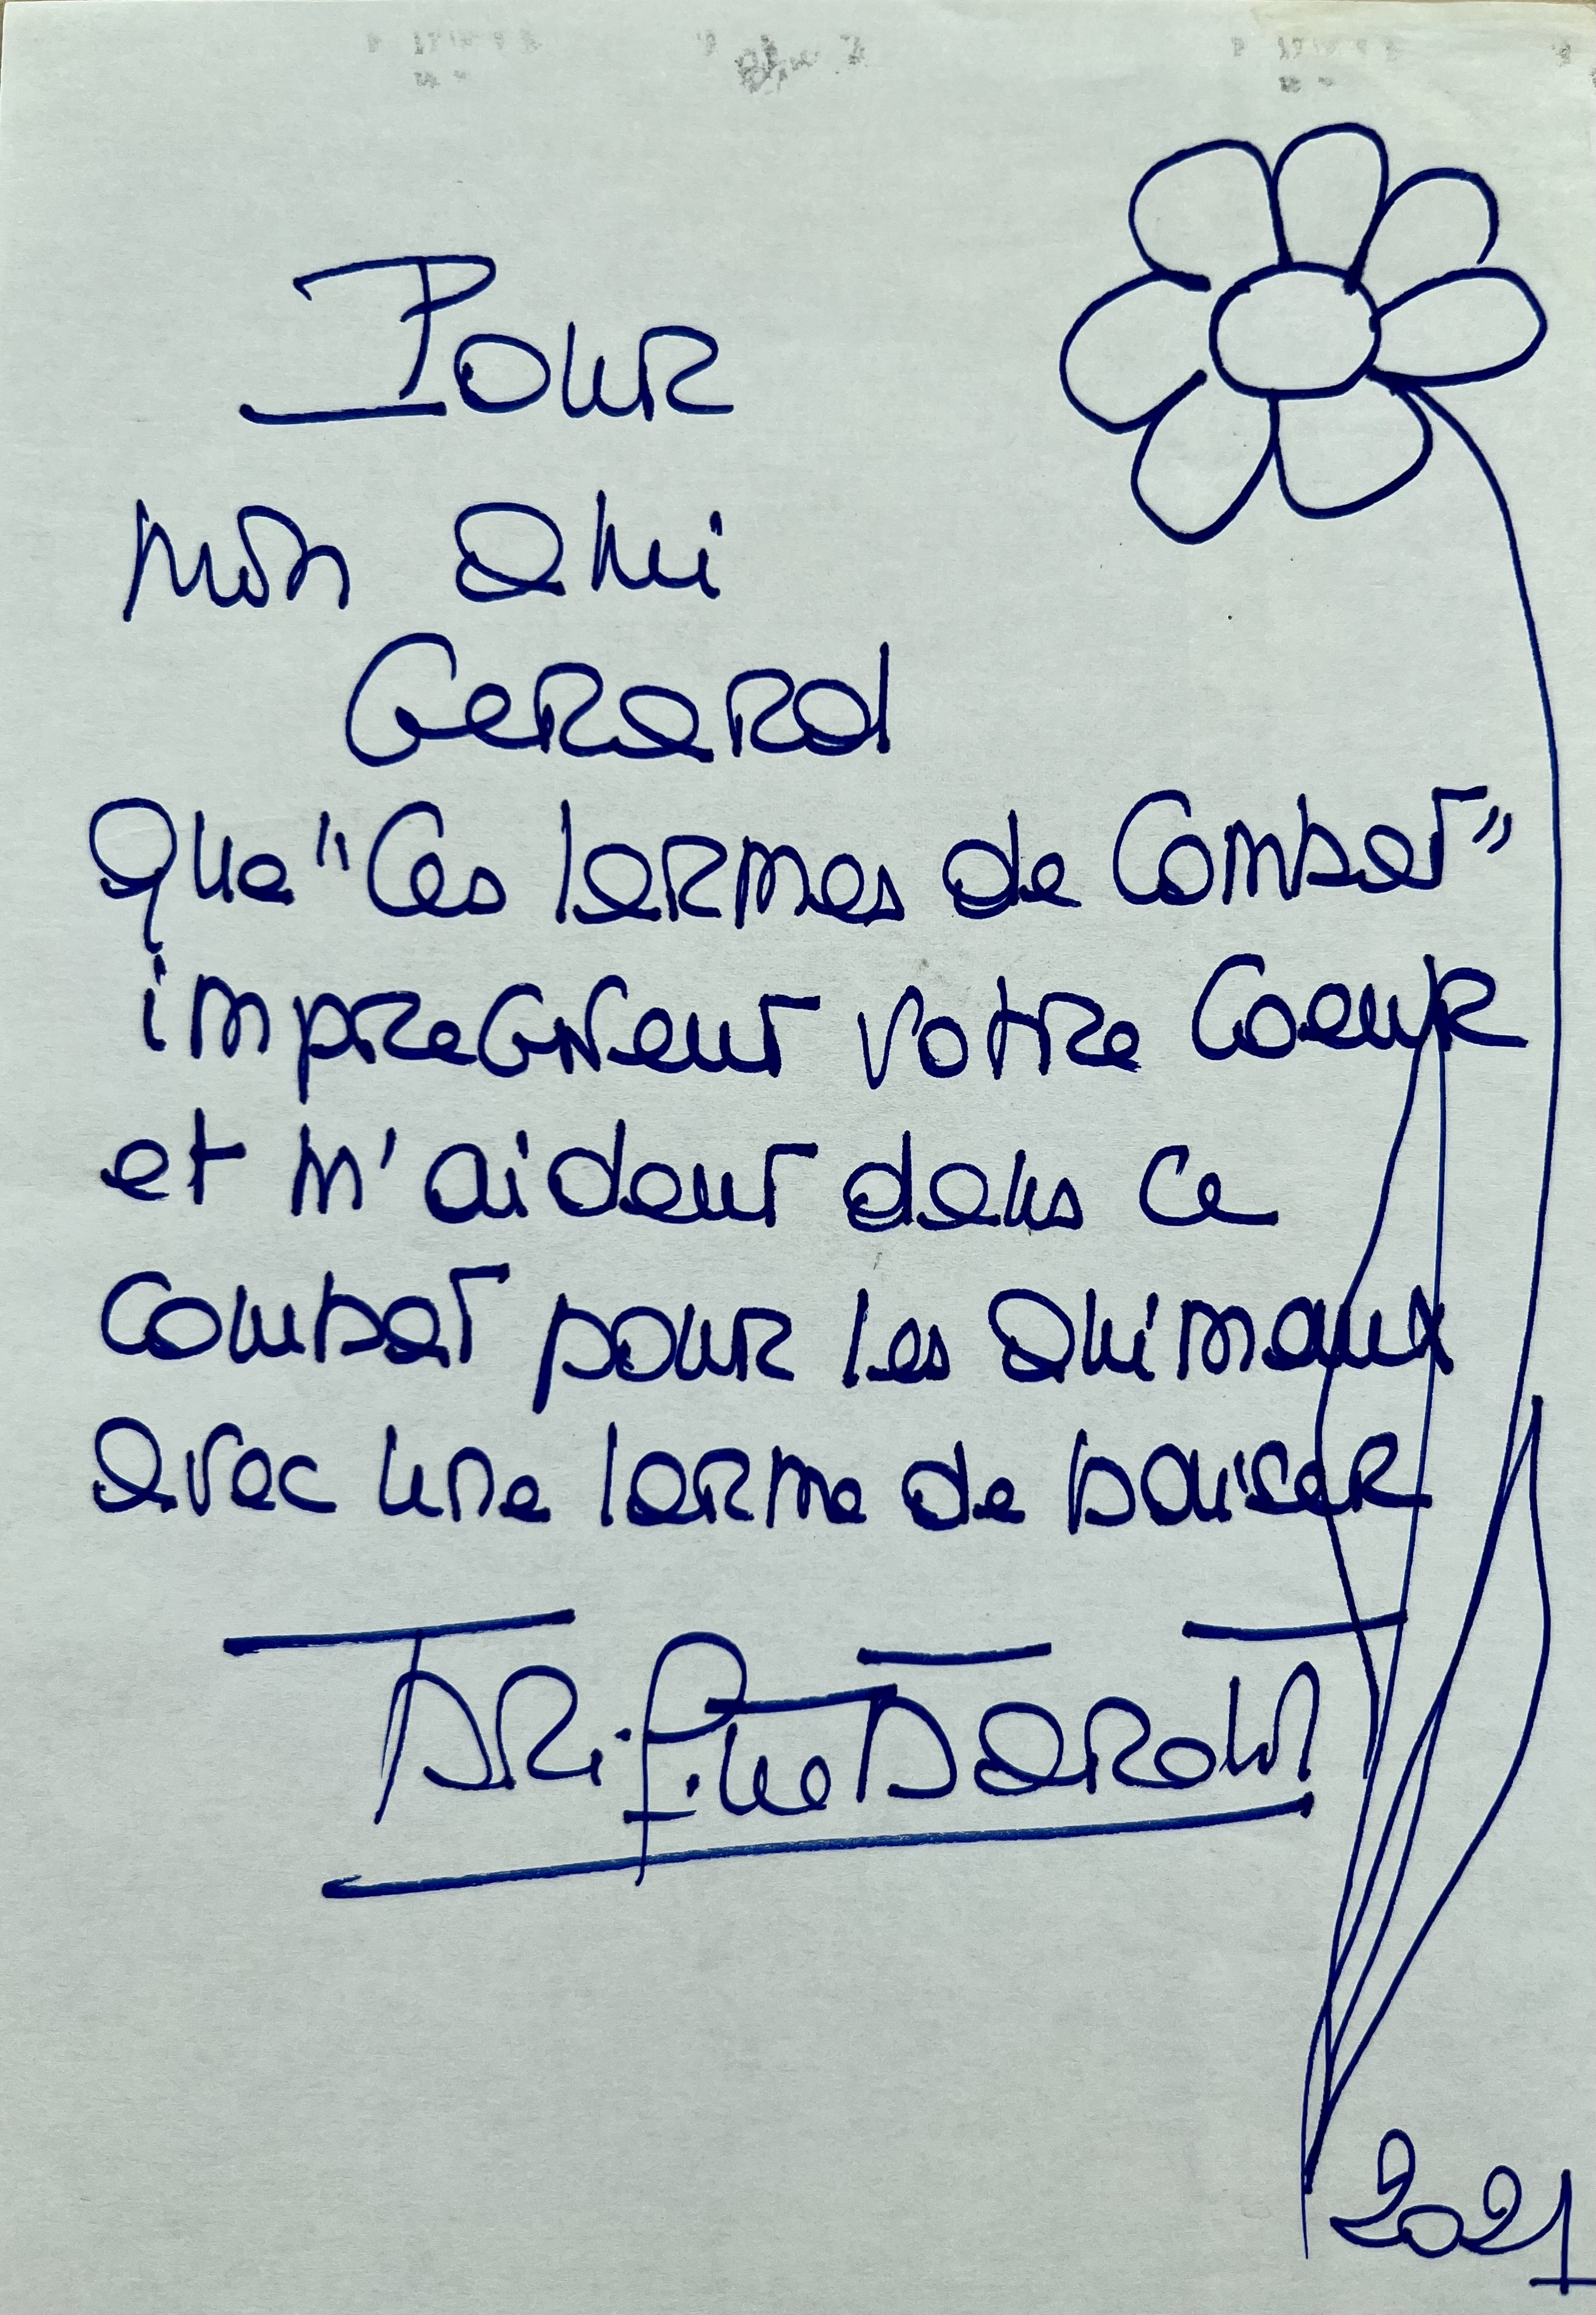 Pour
mon ami
Gerard
Que "Ces larmes de Combat"
impreGNent votre Coeur
et m'aident dans ce
Combat pour les animaux
avec une larme de baiser
Brigitte Bardot
2021